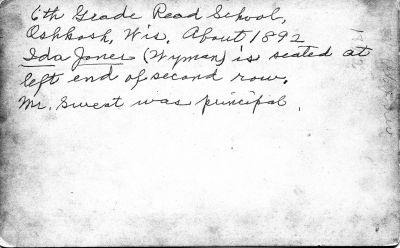 6th Grade Read School,
Oshkosh, Wis. About 1892
Ida Jones (Wyman) is seated at
left end of second row.
Mr. Sweet was principal.